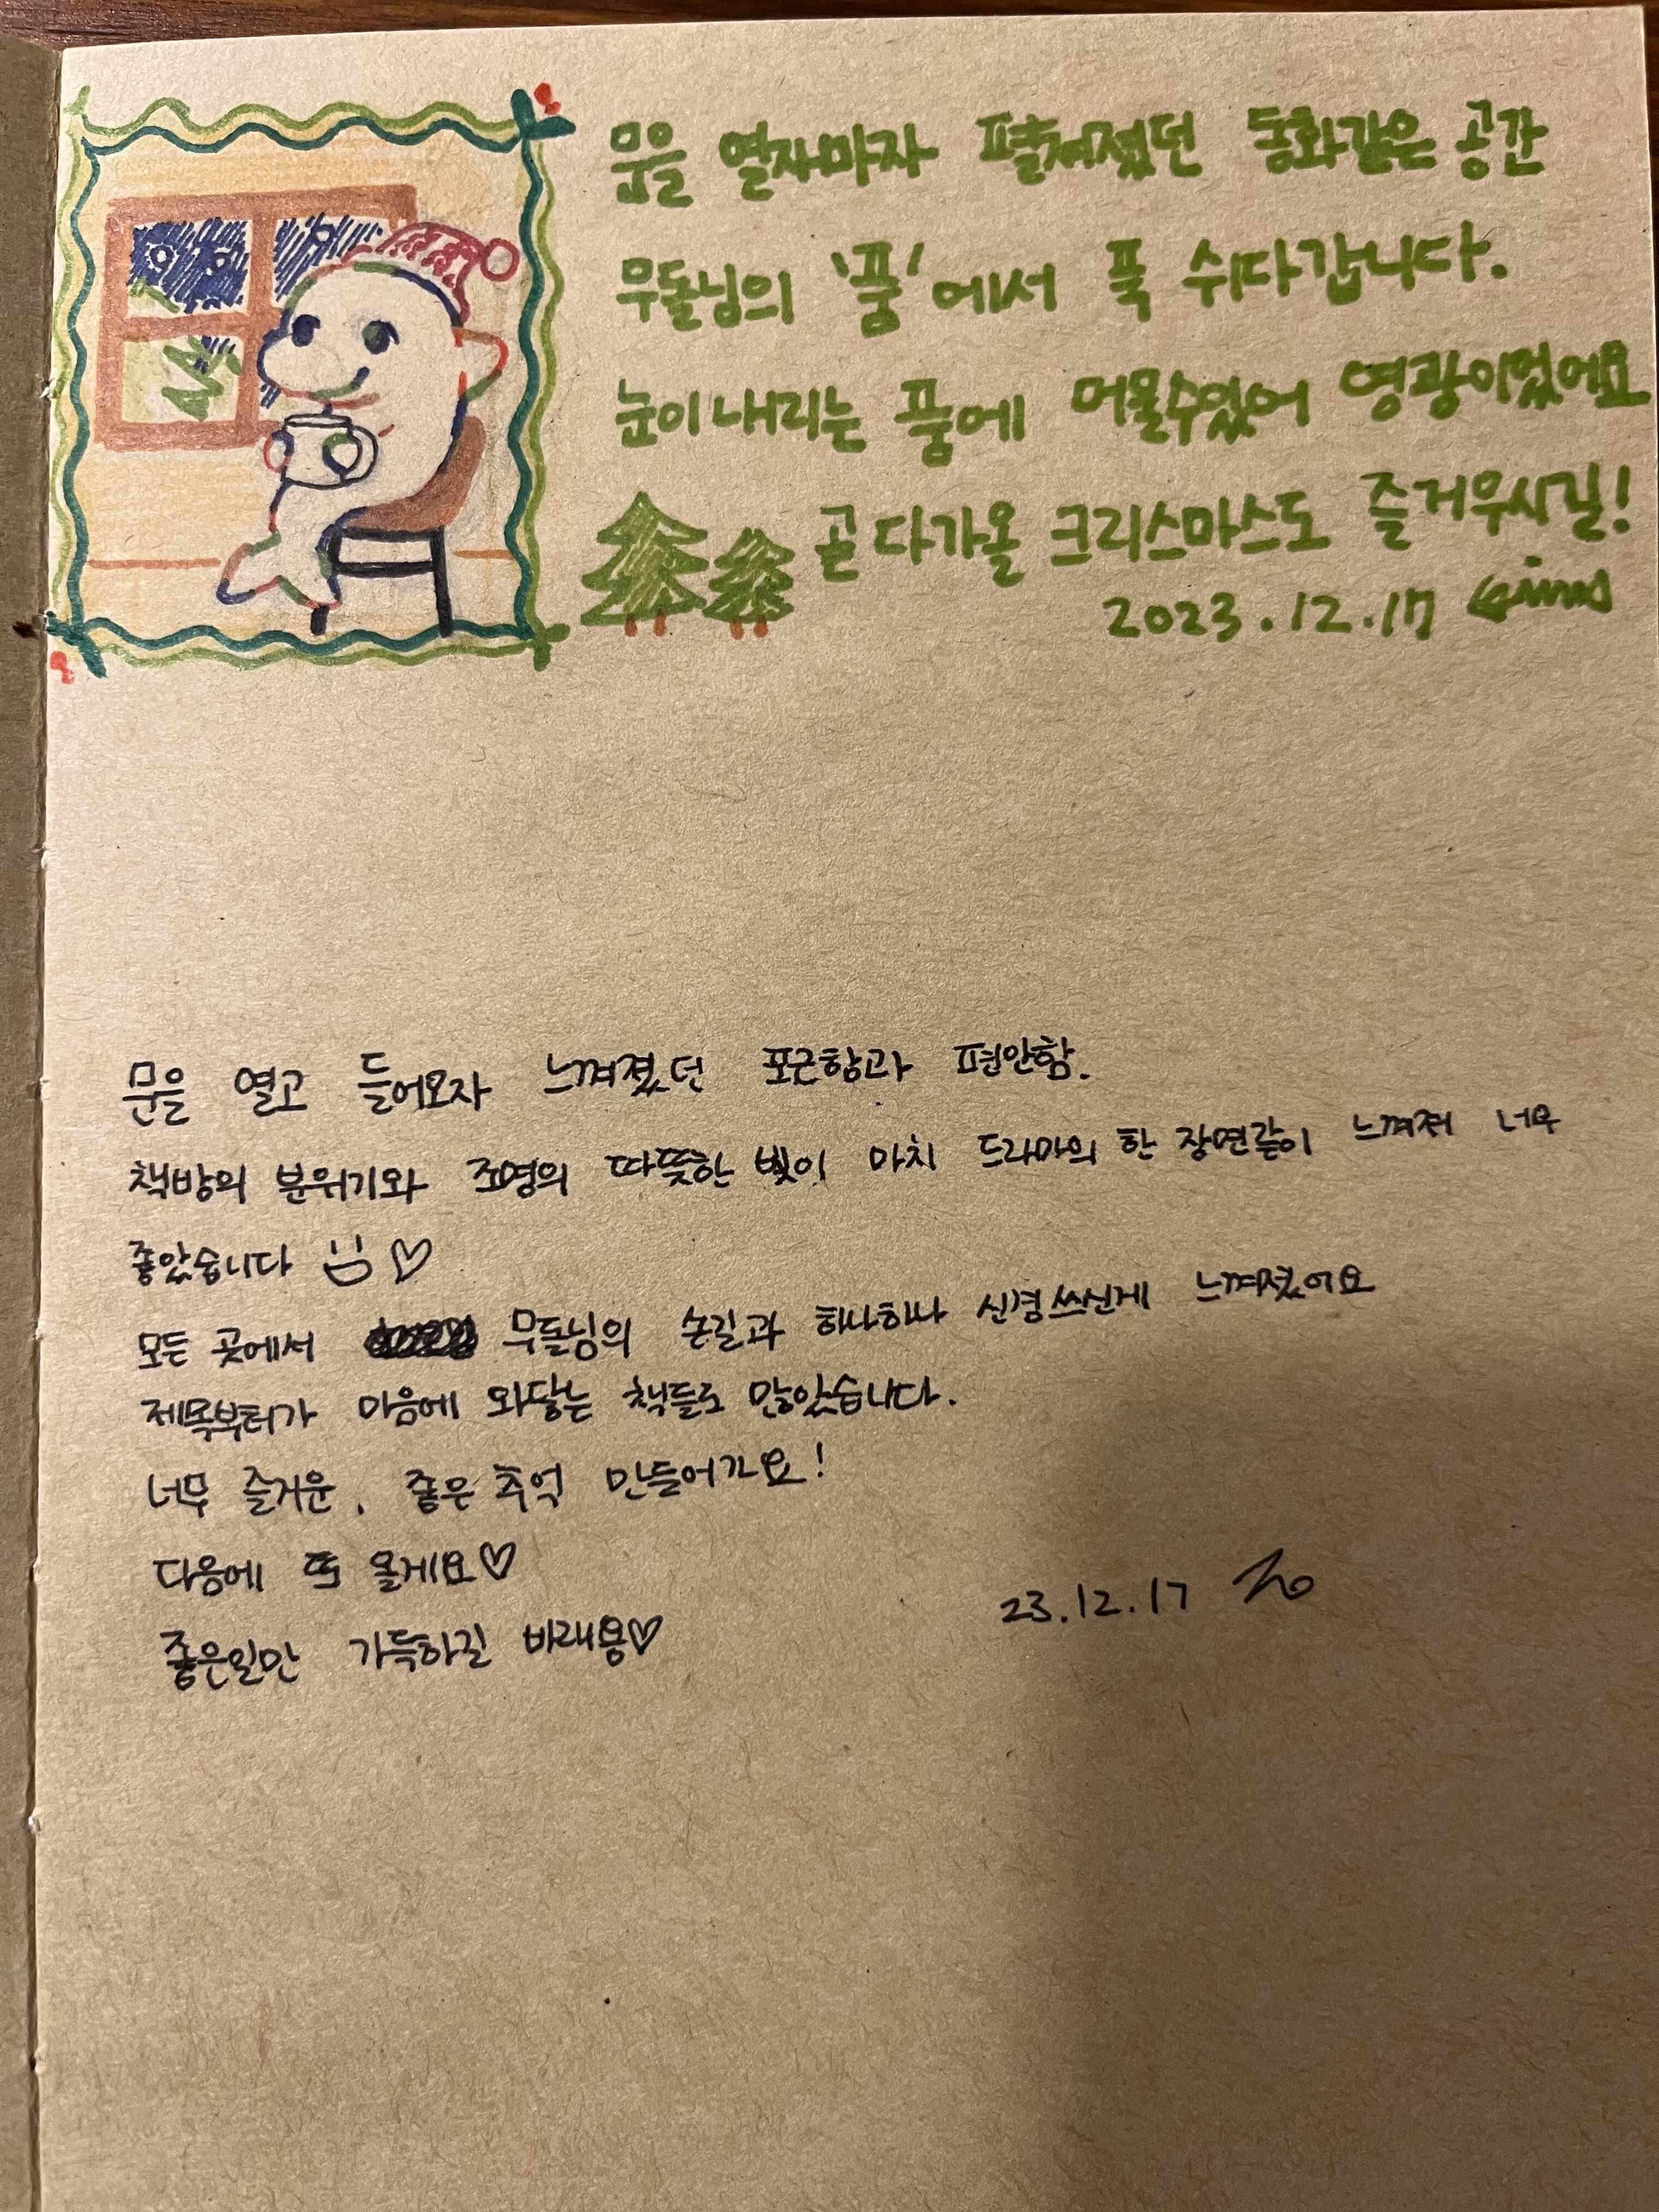 문을 열자마자 펼쳐졌던 동화같은 공간
무돌님의 '품'에서 푹 쉬다갑니다.
눈이 내리는 품에 머물수있어 영광이었어요
곧 다가올 크리스마스도 즐거우시길!
2023.12.17
문을 열고 들어오자 느껴졌던 포근함과 편안함.
책방의 분위기와 조명의 따뜻한 빛이 마치 드라마의 한 장면같이 느껴져 너무
좋았습니다 ♡
모든 곳에서 무돌님의 손길과 하나하나 신경쓰신게 느껴졌어요
제목부터가 마음에 와닿는 책들도 많았습니다.
너무 즐거운, 좋은 추억 만들어가요!
다음에 또 올게요♡
23.12.17
좋은일만 가득하길 바래용♡